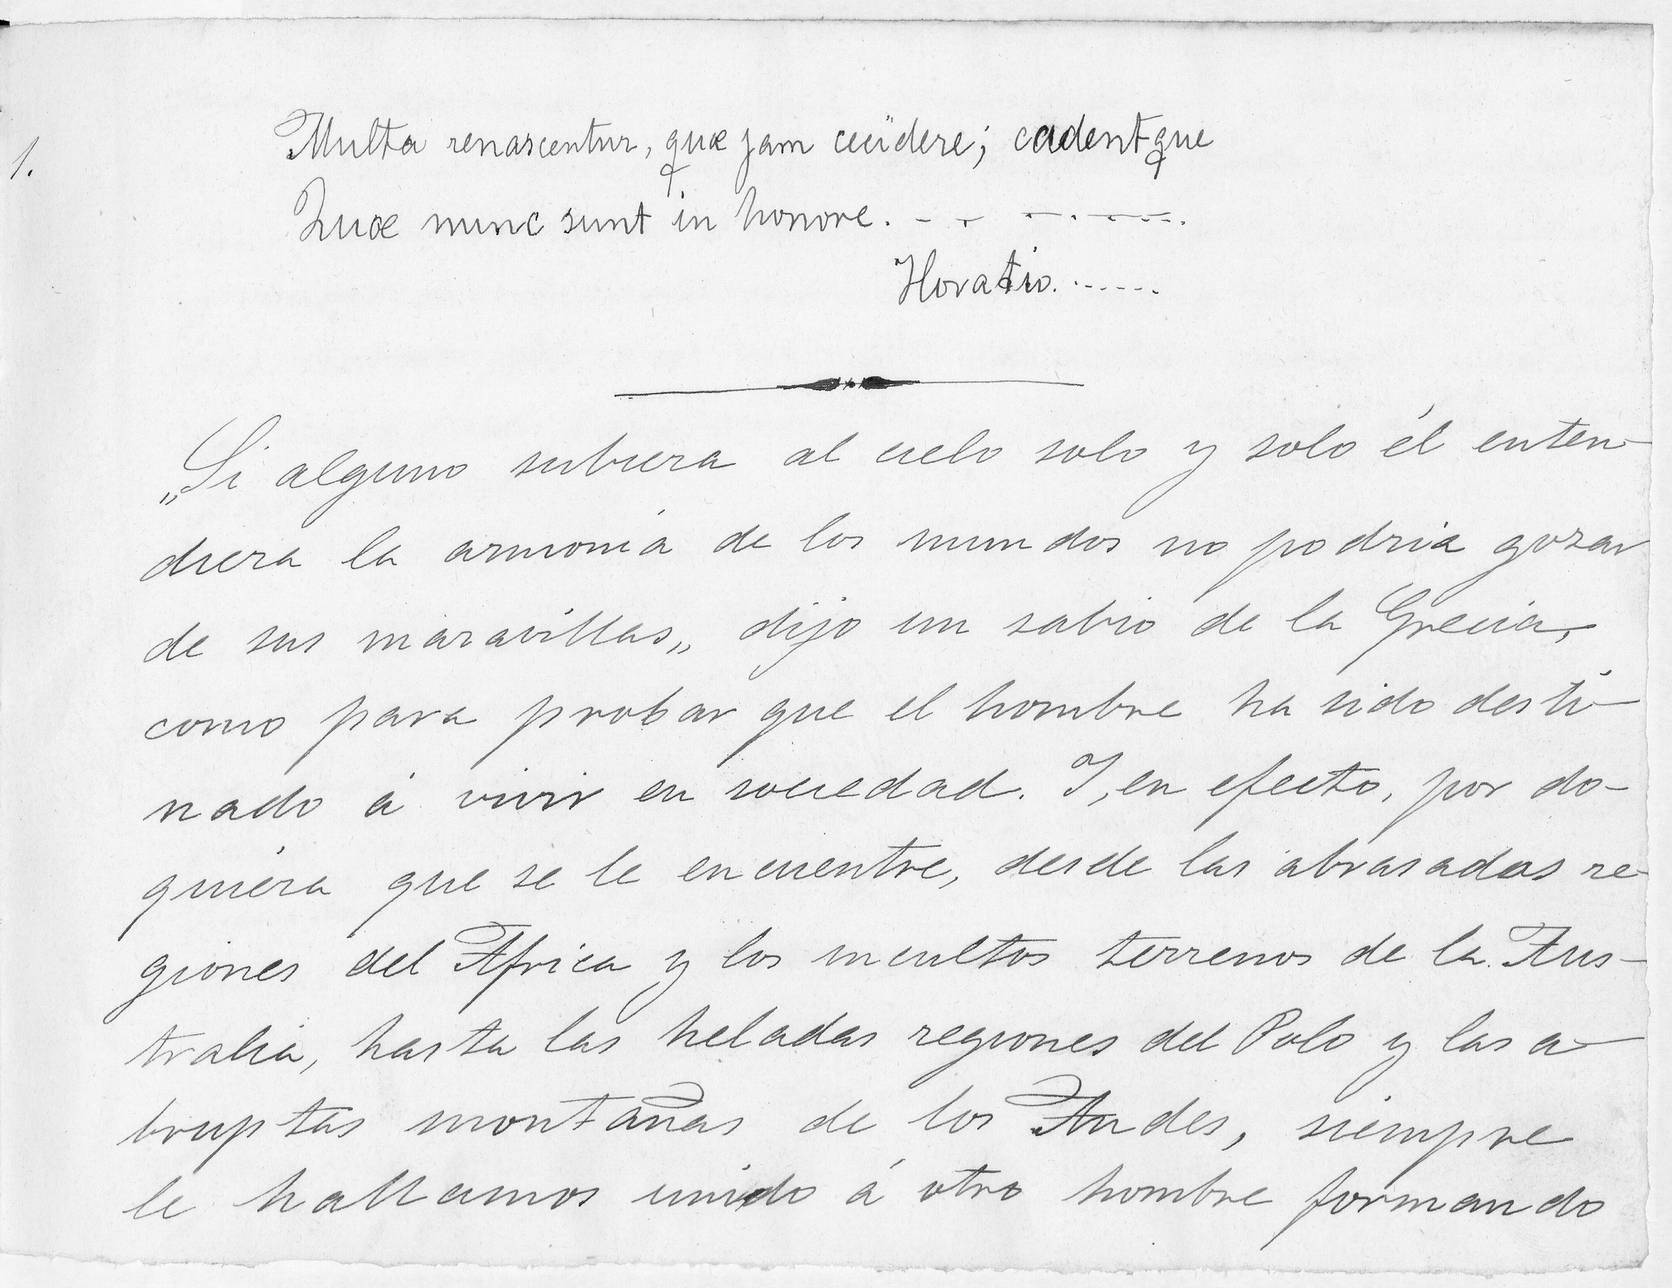 1.
Multa renascentur, quæ jam cecidere; cadentque
Quæ nunc sunt in honore. - - . - . - - - - .
Horatio. ......
„Si alguno subiera al cielo solo y solo él enten-
diera la armonía de los mundos no podria gozar
de sus maravillas„ dijo un sabio de la Grecia,
como para probar que el hombre ha sido desti-
nado á vivir en sociedad. I, en efecto, por do-
quiera que se le encuentre, desde las abrasadas re-
giones del Africa y los incultos terrenos de la Aus-
tralia, hasta las heladas regiones del Polo y las a-
bruptas montañas de los Andes, siempre
le hallamos unido á otro hombre formando